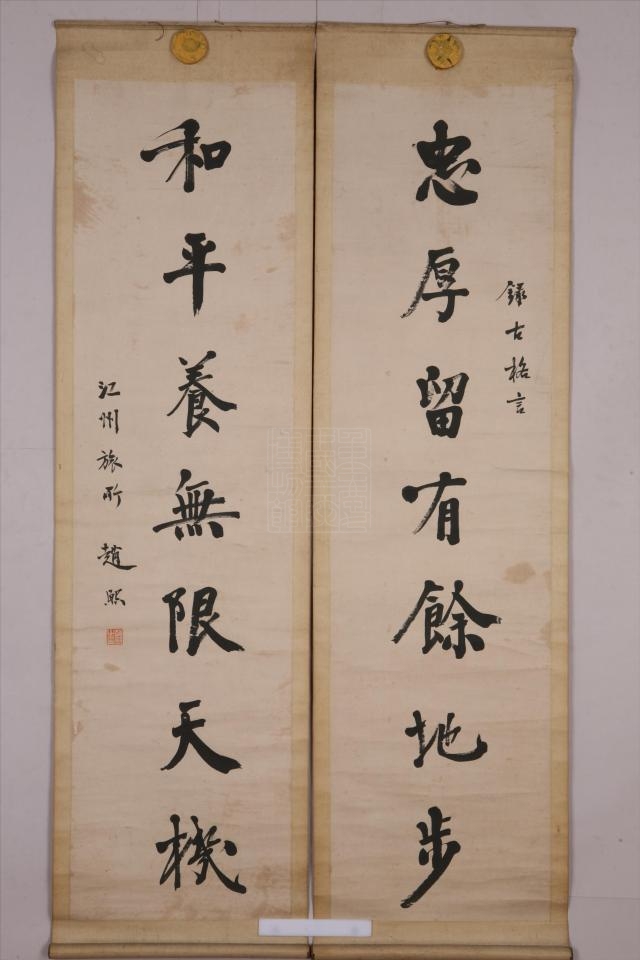 錄古格言
忠厚留有餘地步
和平養無限天機
江州旅所 趙熙